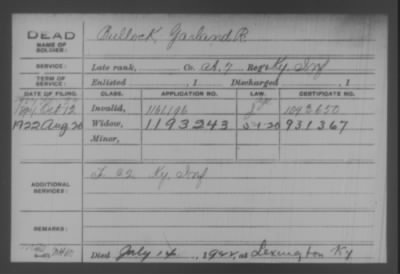 DEAD
NAME OF SOLDIER: Bullock Garland R
SERVICE: Late rank, Co. A. 7 Reg't Ky. Inf
TERM OF SERVICE: Enlisted , 1 Discharged , 1
DATE OF FILING. CLASS. APPLICATION NO. LAW. CERTIFICATE NO.
Oct 12 Invalid, 1161196 1043650
1922 Aug 26 Widow, 1193243 931367
Minor,
ADDITIONAL SERVICES: Ky Inf
REMARKS:
Died July 14 , 19 at Lexington Ky